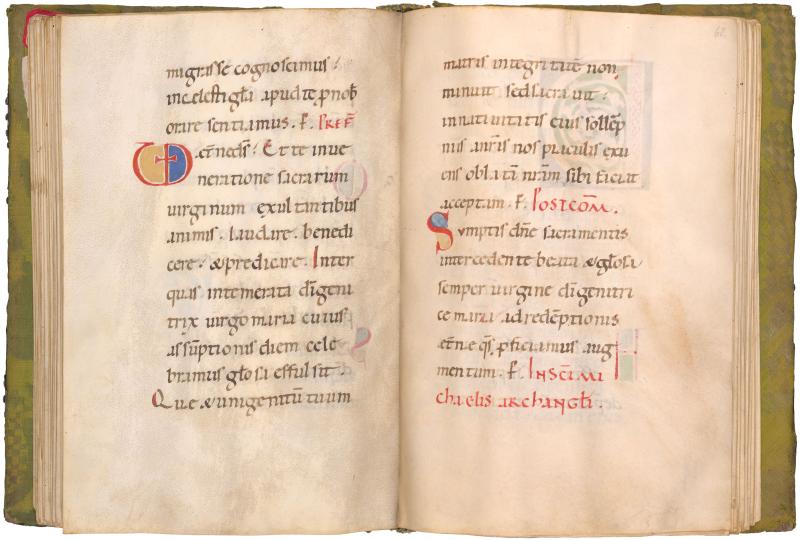 migrasse cognoscimus.
incelesti gl̄a apud te p nob̄
orare sentiamus. P̄. PREF̄
VD æt̄ne d̄s; Et te in ue
neratione sacrarum
uirginum exultantibus
animis. laudare. benedi
cere. & predicare. Inter
quas intemerata dī geni
trix uirgo maria cuius
assūptionis diem cele
bramus gl̄osa effulsit.
Quę & unigenitū tuum
62
matris integritatē non
minuit sed sacrauit.
in natiuitatis eius sollēp
niis a nr̄is nos piaculis exu
ens oblatā nr̄am sibi faciat
acceptam. P̄. Postcom̄.
Sumptis dn̄e sacramentis
intercedente beata & gl̄osa
semper uirgine dī genitri
ce maria ad redēptionis
æt̄nę q̄s pficiamus aug
mentum. P̄. In sc̄i mi
chaelis archangl̄i.